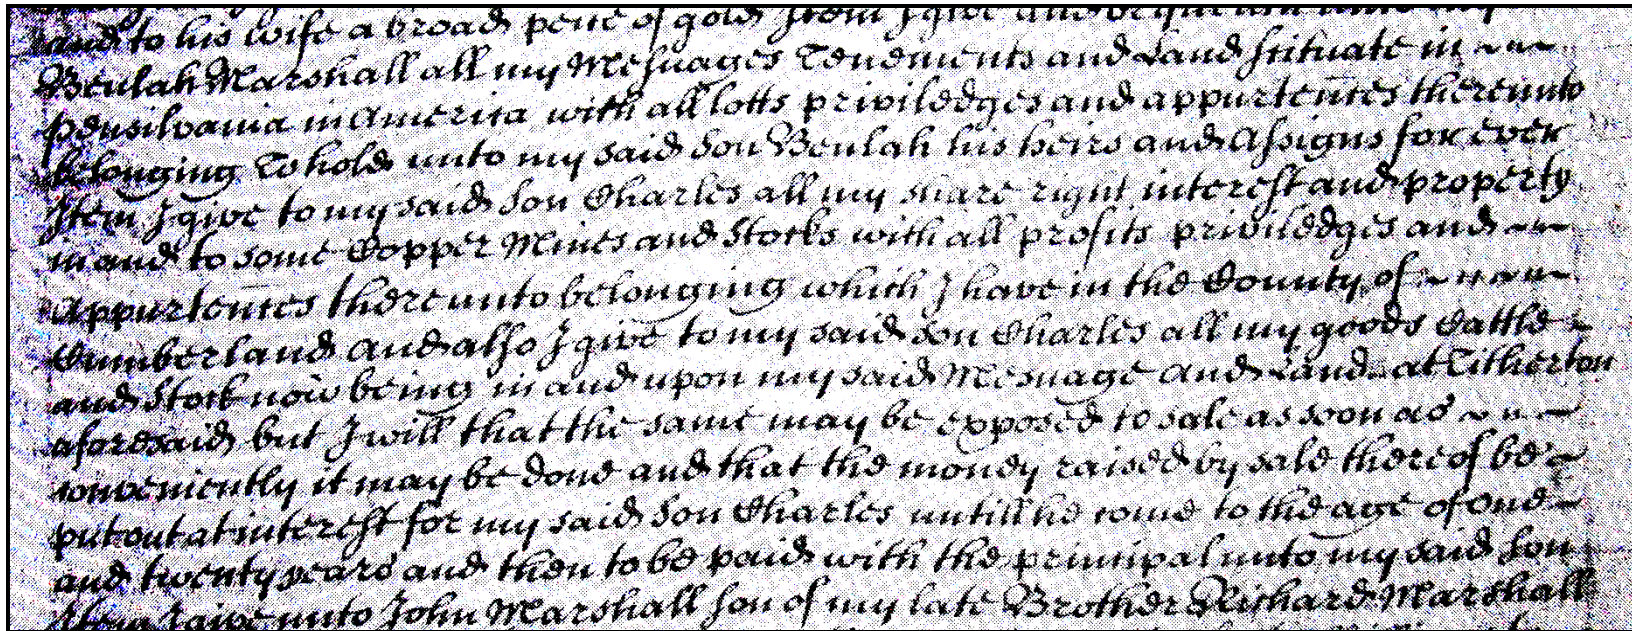 and to his wife a broad peice of gold Item I give and bequeath unto my
Beulah Marshall all my Messuages Tenements and Land scituate in
Pensilvania in America with all lotts priviledges and appurtences thereunto
belonging To hold unto my said Son Beulah his heirs and Assigns for ever
Item I give to my said Son Charles all my share right interest and property
in and to some Copper Mines and Stocks with all profits priviledges and
Appurtences there unto belonging which I have in the County of
Cumberland and also I give to my said Son Charles all my goods Cattle
and Stock now being in and upon my said Mesuage and Land at Titherton
aforesaid but I will that the same may be exposed to sale as soon as
conveniently it may be done and that the money raised by sale thereof be
put out at interest for my said Son Charles untill he come to the age of One
and twenty years and then to be paid with the principal unto my said Son
Item I give unto John Marshall Son of my late Brother Richard Marshall